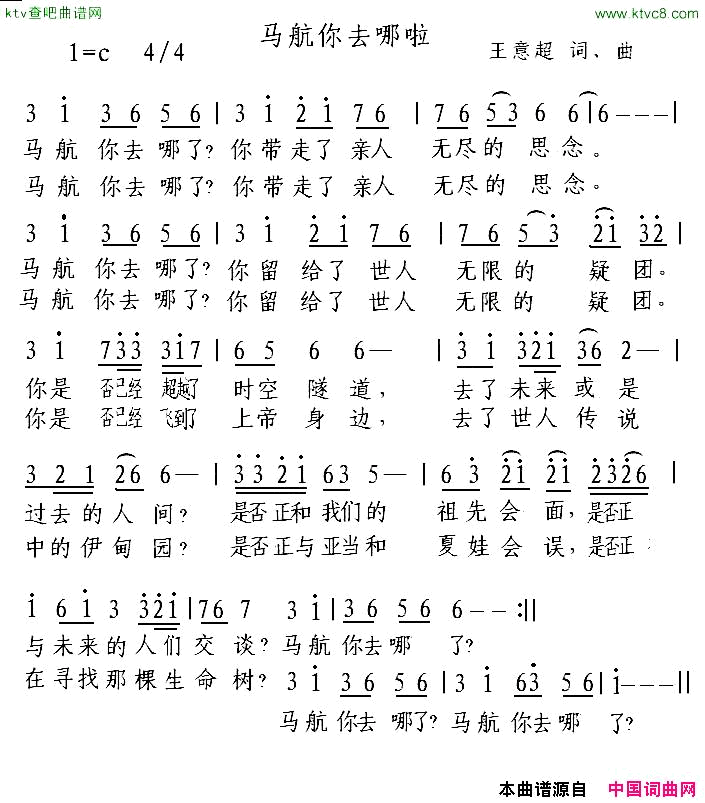 ktv查吧曲谱网
www.ktvc8.com
马航你去哪啦
1=c 4/4
王意超 词、曲
3 i 3 6 5 6 | 3 i 2 i 7 6 | 7 6 5 3 6 6 | 6 - - - |
马航你去哪了?你带走了亲人 无尽的思念。
马航你去哪了?你带走了亲人 无尽的思念。
3 i 3 6 5 6 | 3 i 2 i 7 6 | 7 6 5 3 2 i 3 2 |
马航你去哪了?你留给了世人 无限的 疑团。
马航你去哪了?你留给了世人 无限的 疑团。
3 i 7 3 3 3 i 7 | 6 5 6 6 — | 3 i 3 2 i 3 6 2 — |
你是否已经超越了 时空隧道, 去了未来或是
你是否已经飞到了 上帝身边, 去了世人传说
3 2 1 2 6 6 — | 3 3 2 i 6 3 5 — | 6 3 2 i 2 i 2 3 2 6 |
过去的人间? 是否正和我们的 祖先会面,是否正
中的伊甸园? 是否正与亚当和 夏娃会误,是否正
i 6 i 3 3 2 i | 7 6 7 3 i | 3 6 5 6 6 - - :||
与未来的人们交谈?马航你去哪 了?
在寻找那棵生命树?
3 i 3 6 5 6 | 3 i 6 3 5 6 | i - - ||
马航你去哪了?马航你去哪 了?
本曲谱源自 中国词曲网